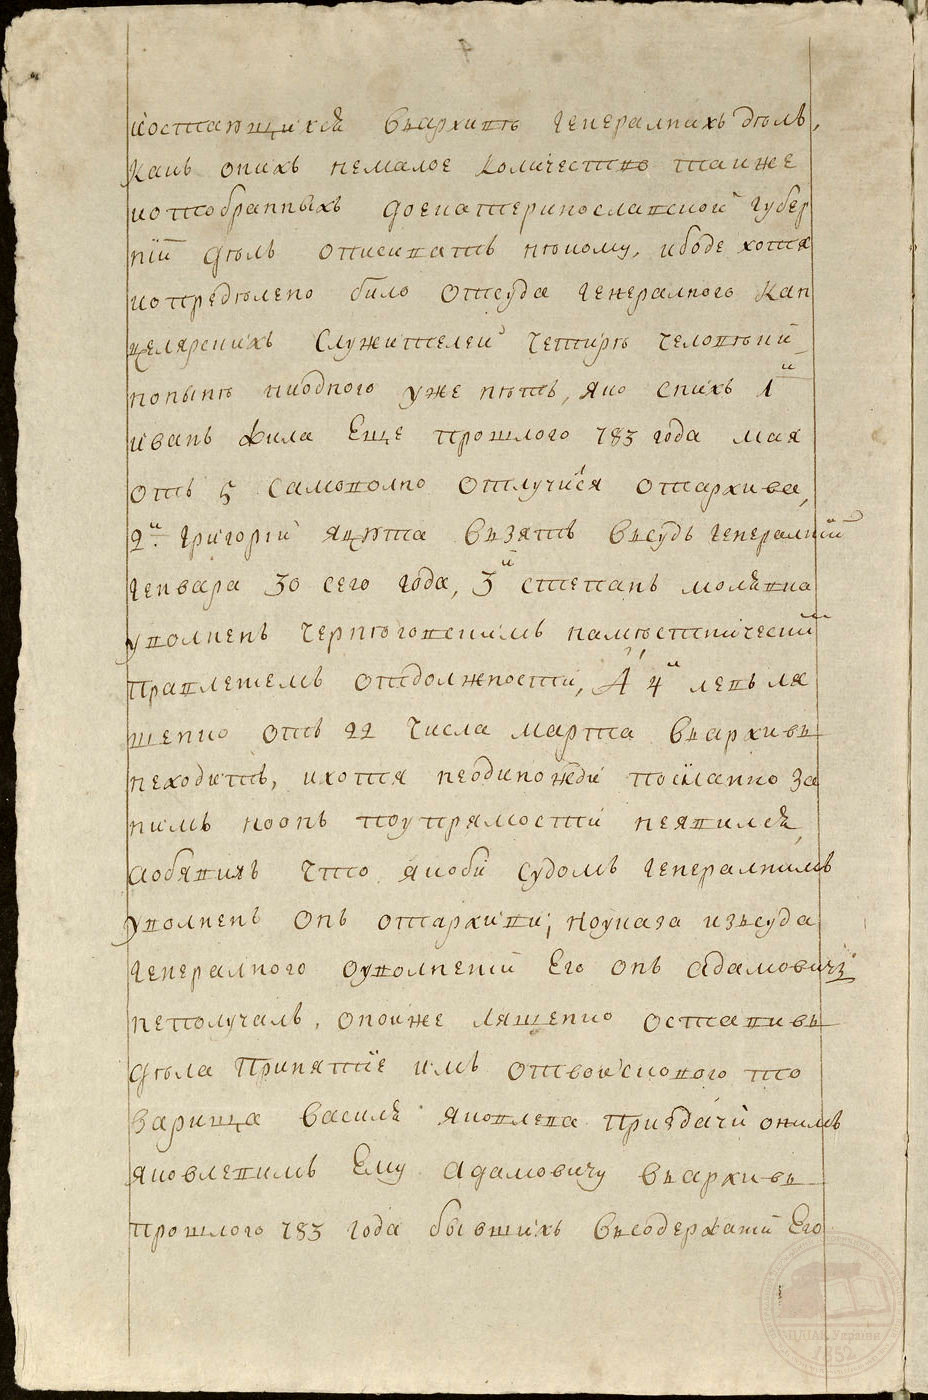 иостающихся въархивѣ генералнихъ дѣлъ,
какъ онихъ немалое количество такиже
иотобранныхъ доекатеринославской губер
нїи дѣлъ описивать нѣкому, ибоде хотя
иопредѣлено било отсуда генералного кан
целярскихъ служителей четирѣ человѣки
нонынѣ ниодного уже нѣтъ, яко снихъ 1й
иванъ Жила Еще прошлого 783 года мая
отъ 5 самоволно отлучися отархива,
2й григорїй Яцюта възятъ въсудъ генералнїй
генвара 30 сего года, 3й степанъ молявка
уволненъ чернѣговскимъ намѣстническим
правлетемъ отдолжности, А 4й левъ ля
шенко отъ 22 числа марта въархивъ
неходитъ, ихотя неодиножди посилано за
нимъ нoонъ поупрямости неявился,
аобявилъ что якоби судомъ генералнимъ
уволненъ онъ отархиви; ноуказа изъсуда
генералного оуволненїи Его онъ адамовичъ
неполучалъ, онойже ляшенко оставивъ
дѣла Принятїе имъ отвойскового то
варища василя яковлева приездачи онимъ
яковлевимъ Ему адамовичу въархивъ
прошлого 783 года бывшихъ въсодержанїи Его
1852